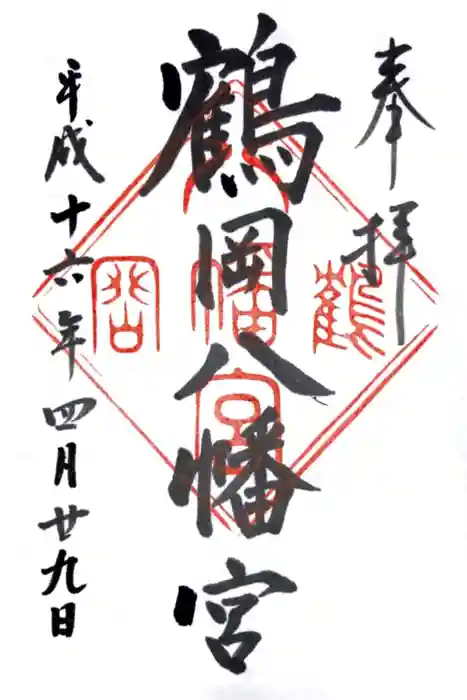 奉拝
鶴岡八幡宮
平成十六年四月廿九日